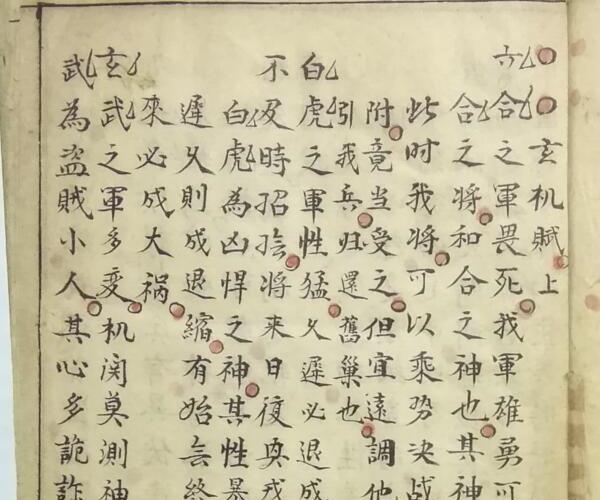 玄机賦上
六合之軍畏死我軍雄勇可
合之将和合之神也其神
此时我将可以乘势决战
附竟當受之但宜遠調他
引我兵归還舊巢也
白虎之軍性猛久遲必退成
不及時招撿将來日復與戎
白虎為凶悍之神其性暴
遲久則成退縮有始無終
來必成大禍
玄武之軍多変机関莫測神
武為盗賊小人其心多詭詐